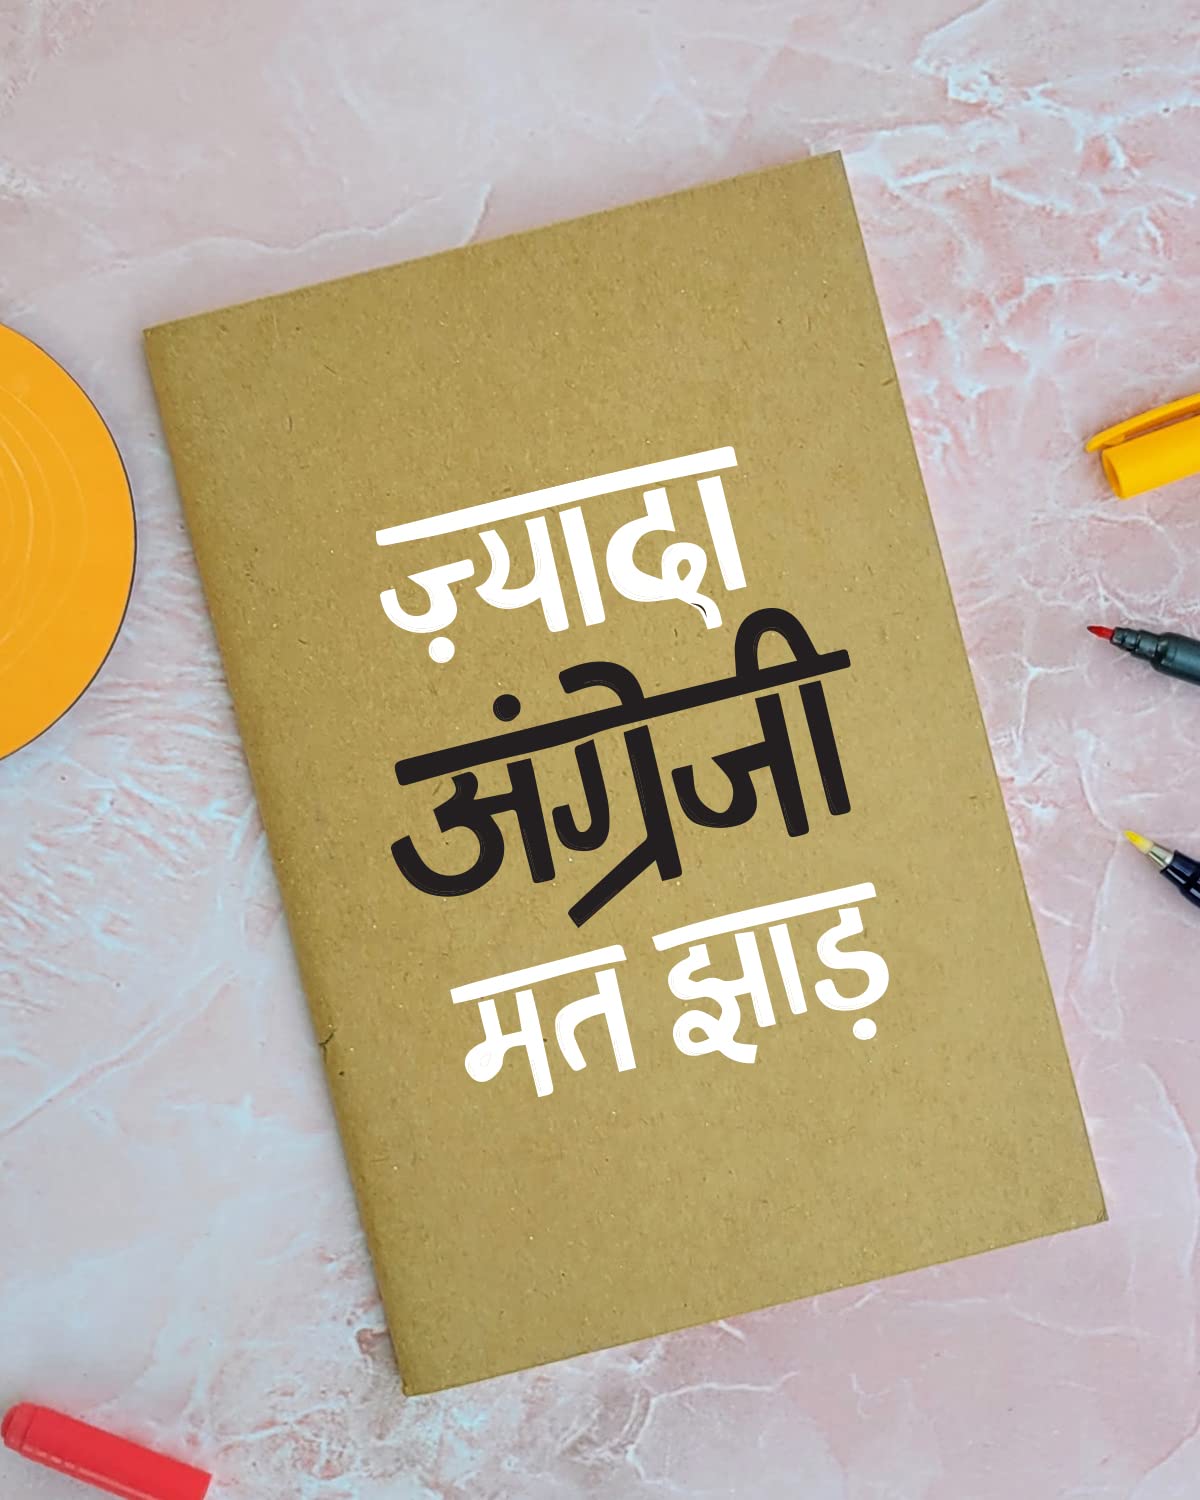 ज़्यादा
अंग्रेजी
मत झाड़